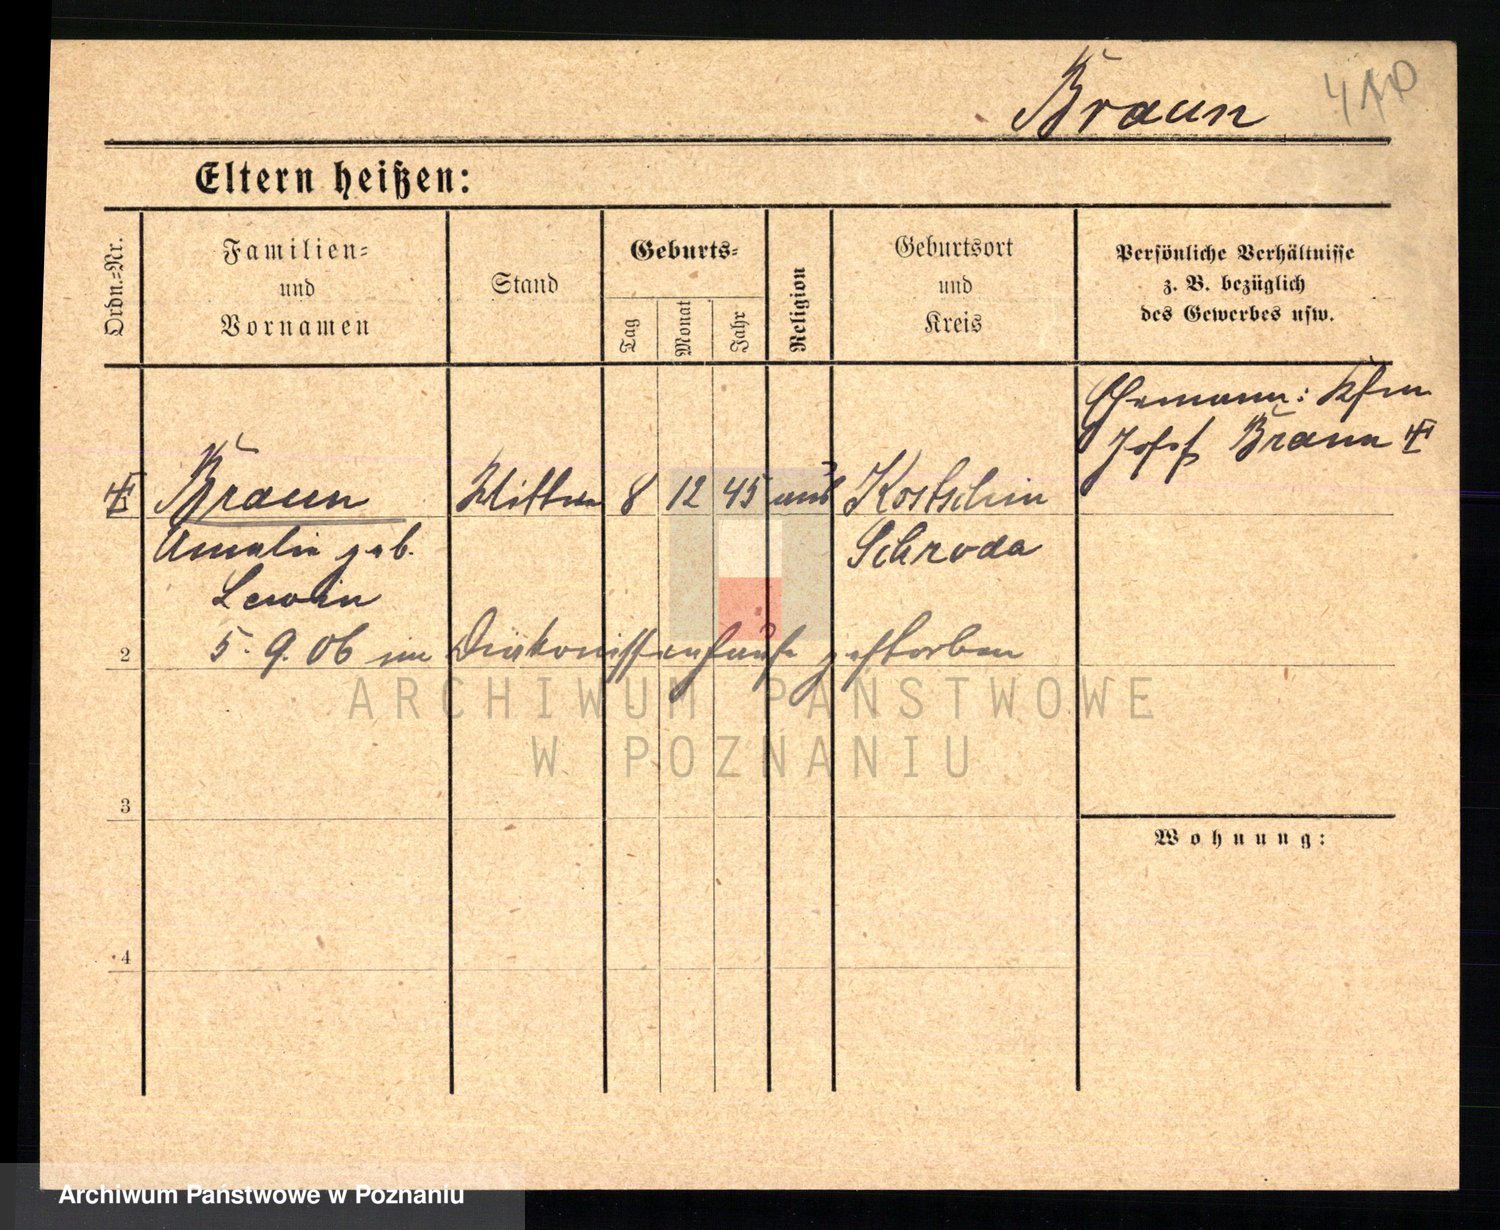 Braun 410
Eltern heißen:
Ordn.-Nr.
Familien-
und
Vornamen
Stand
Geburts-
Tag
Monat
Jahr
Religion
Geburtsort
und
Kreis
Persönliche Verhältnisse
z. B. bezüglich
des Gewerbes usw.
Ehemann: Kfm
Josef Braun
Braun Wittwe 8 12 45 mos Kostschin
Amalie geb. Schroda
Lewin
2 5. 9. 06 im Diakonissenhause gestorben
ARCHIWUM PAŃSTWOWE
W POZNANIU
3
Wohnung:
4
Archiwum Państwowe w Poznaniu